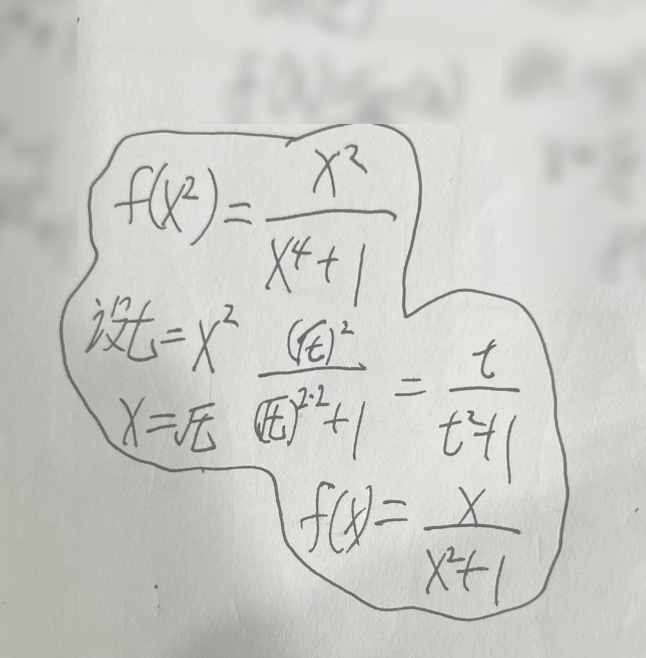 f(x²) = x² / (x⁴+1)
设t=x² (√t)² / ((√t)^{2·2}+1) = t / (t²+1)
x=√t
f(x) = x / (x²+1)